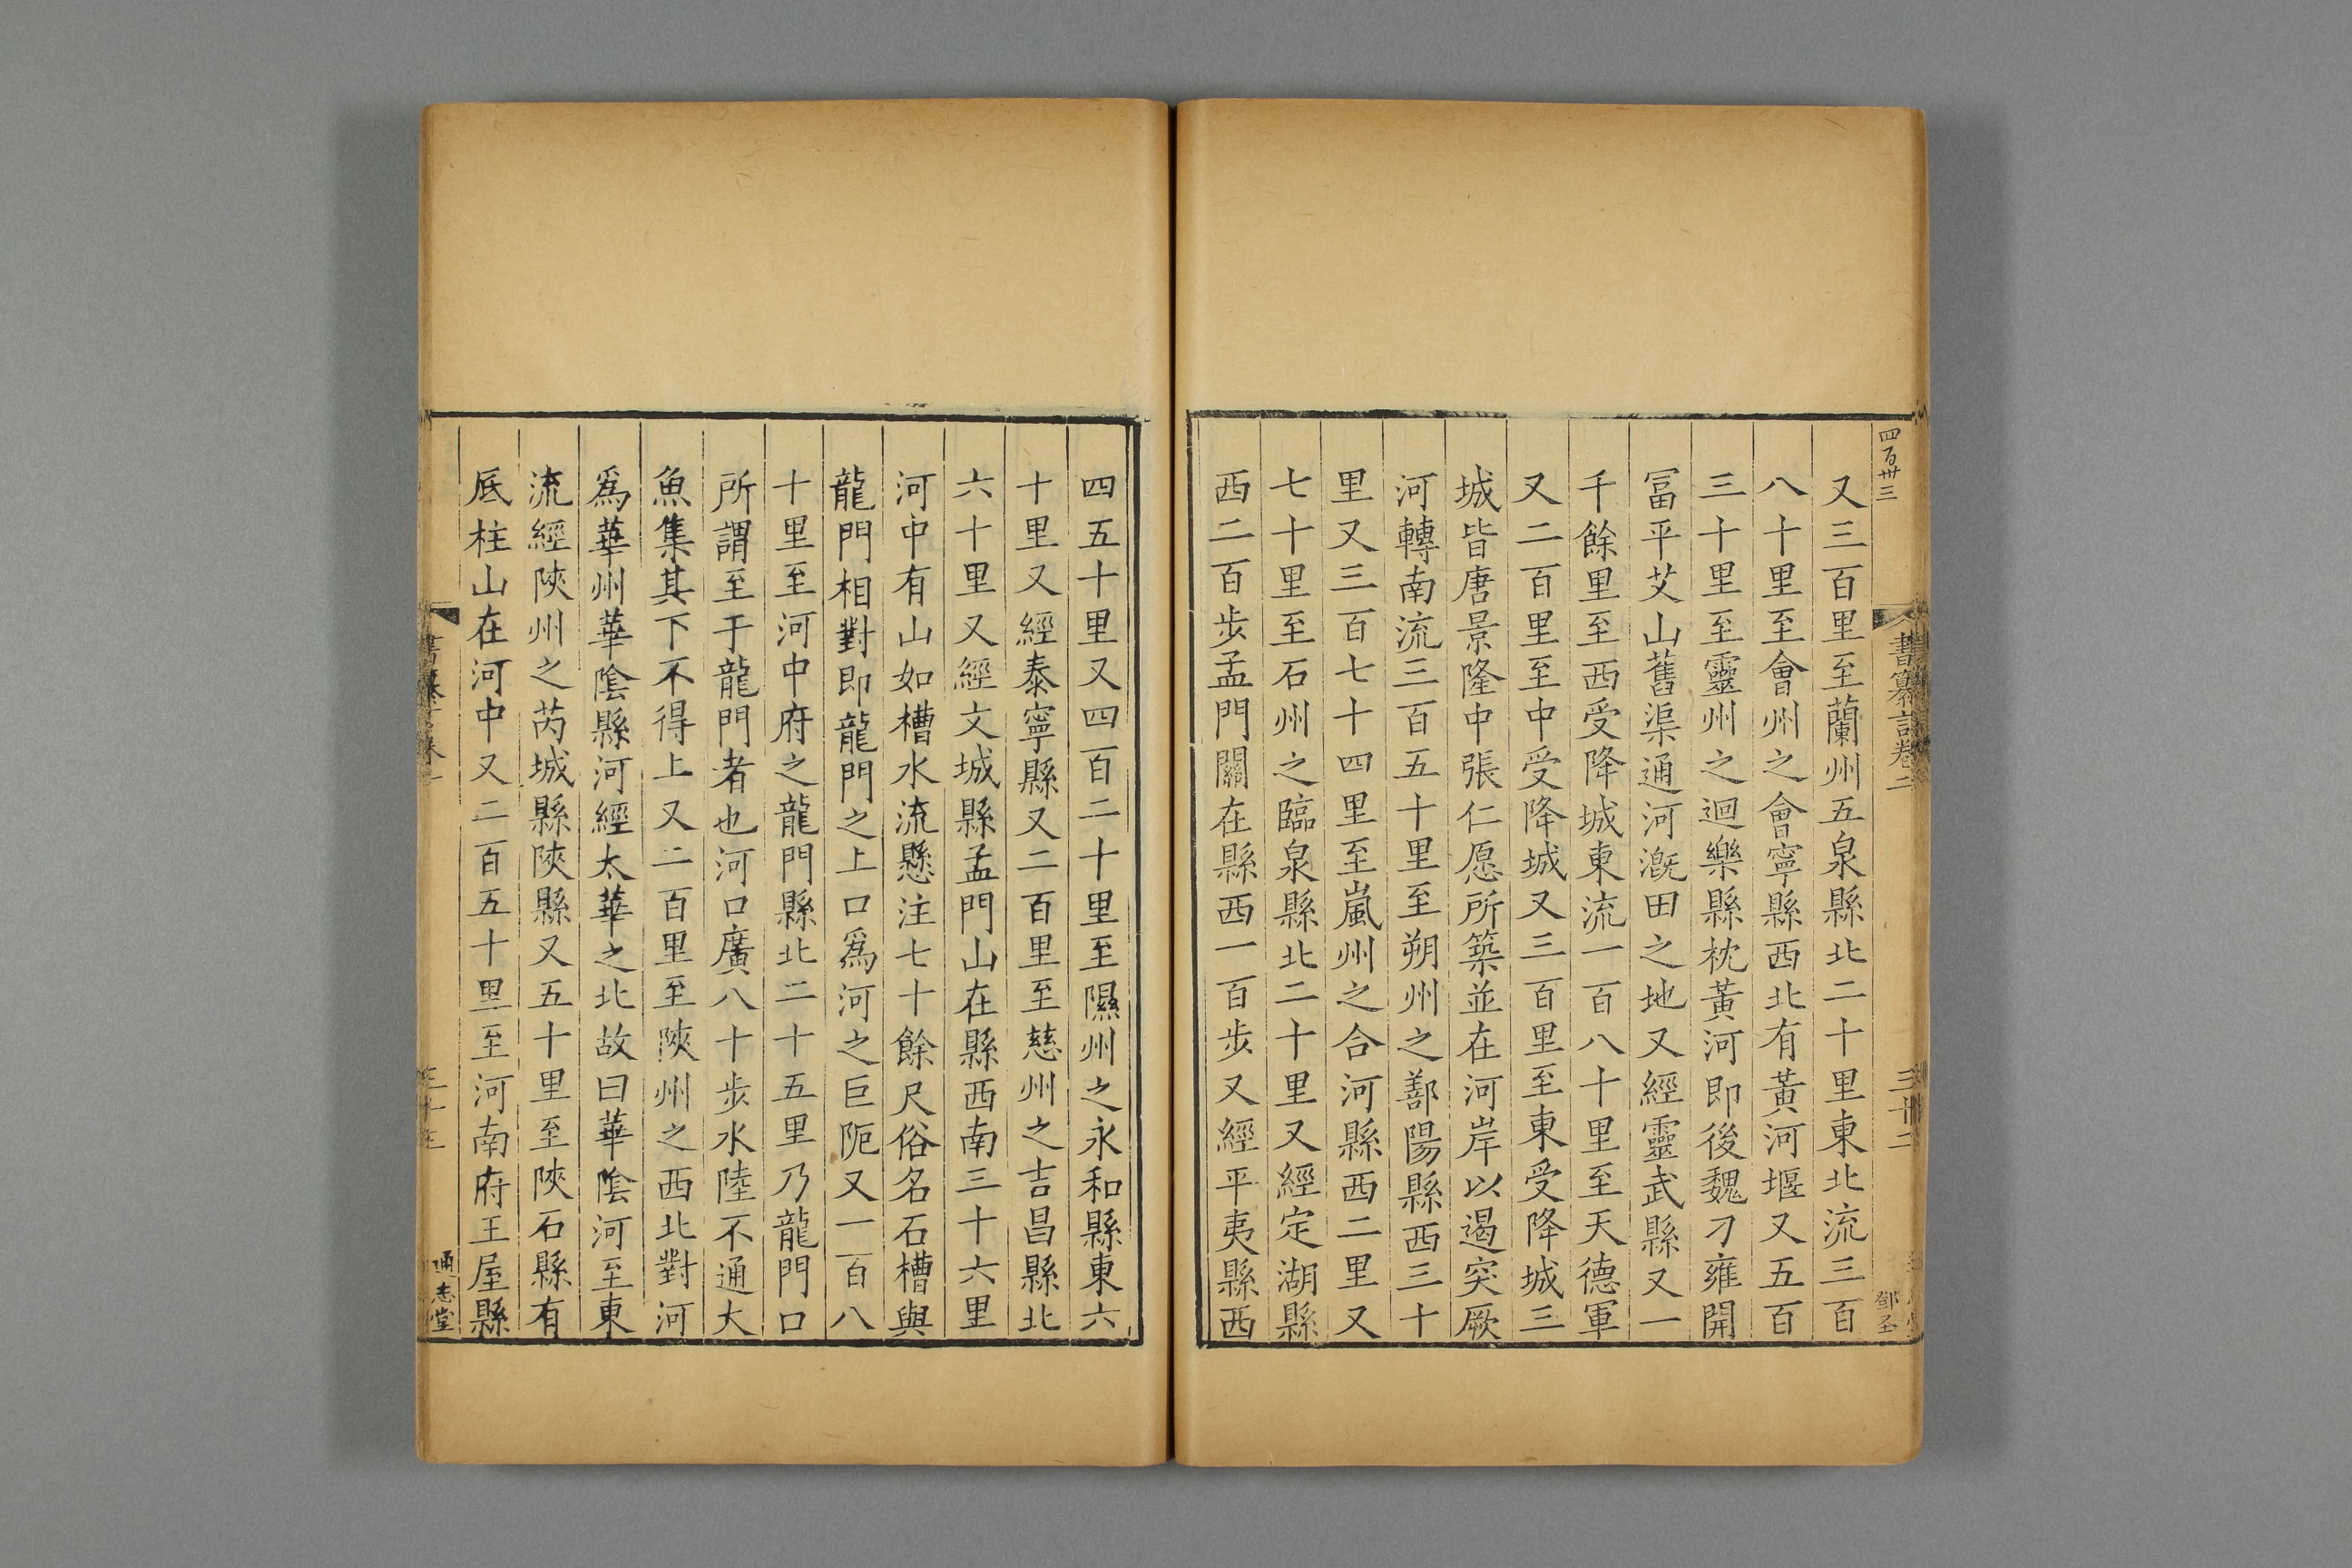 四百卅三
書纂言卷二
三十二
鄧玉
又三百里至蘭州五泉縣北二十里東北流三百
八十里至會州之會寧縣西北有黃河堰又五百
三十里至靈州之迴樂縣枕黃河即後魏刁雍開
冨平艾山舊渠通河漑田之地又經靈武縣又一
千餘里至西受降城東流一百八十里至天德軍
又二百里至中受降城又三百里至東受降城三
城皆唐景隆中張仁愿所築並在河岸以遏突厥
河轉南流三百五十里至朔州之鄯陽縣西三十
里又三百七十四里至嵐州之合河縣西二里又
七十里至石州之臨泉縣北二十里又經定湖縣
西二百步孟門關在縣西一百步又經平夷縣西
四五十里又四百二十里至隰州之永和縣東六
十里又經泰寧縣又二百里至慈州之吉昌縣北
六十里又經文城縣孟門山在縣西南三十六里
河中有山如槽水流懸注七十餘尺俗名石槽與
龍門相對即龍門之上口爲河之巨阨又一百八
十里至河中府之龍門縣北二十五里乃龍門口
所謂至于龍門者也河口廣八十步水陸不通大
魚集其下不得上又二百里至陝州之西北對河
爲華州華陰縣河經太華之北故曰華陰河至東
流經陝州之芮城縣陝縣又五十里至陝石縣有
底柱山在河中又二百五十里至河南府王屋縣
通志堂